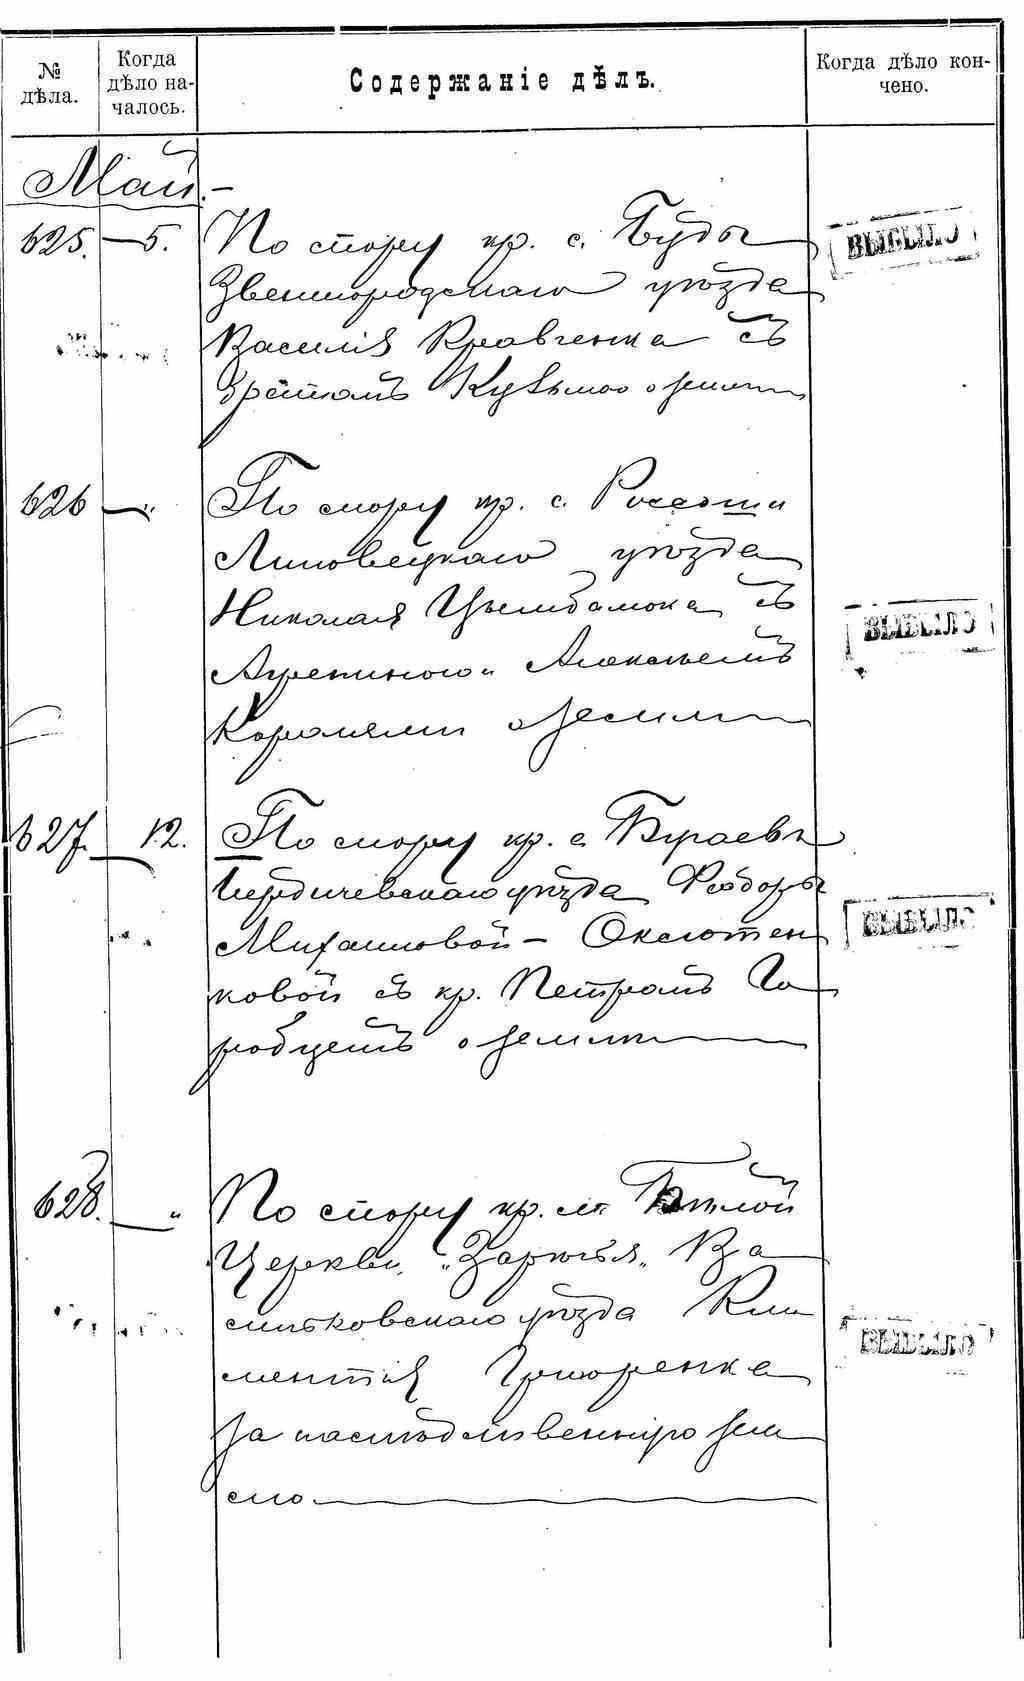 № дѣла.
Когда дѣло началось.
Содержаніе дѣлъ.
Когда дѣло кончено.
Май.
625. 5. По спору кр. с. Буды
Звенигородскаго уѣзда
Василія Кравченка съ
братомъ Кузьмою о землѣ
ВЫБЫЛО
626 " По спору кр. с. Россоши
Липовецкаго уѣзда
Николая Цымбалюка съ
и Алексѣемъ
Королями о землѣ
ВЫБЫЛО
627. 12. По спору кр. с. Бураевъ
Бердичевскаго уѣзда Ѳеодоры
Михайловой - Оксютен
ковой съ кр. Петромъ Го
робцемъ о землѣ
ВЫБЫЛО
628. " По спору кр. м. Бѣлой
Церкви, "Зарѣчья" Ва
сильковскаго уѣзда Кли
ментія Григоренка
за наслѣдственную зем
лю
ВЫБЫЛО